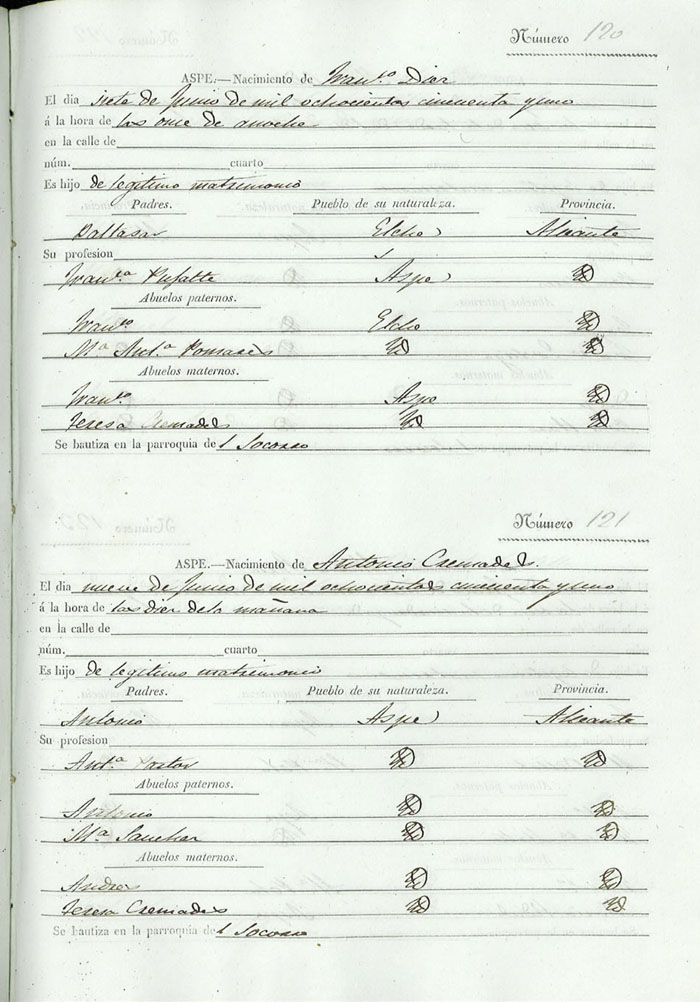 Número 120
ASPE.—Nacimiento de Fran.co Diez
El dia siete de Junio de mil ochocientos cincuenta y uno
á la hora de las once de anoche
en la calle de
núm. cuarto
Es hijo de legitimo matrimonio
Padres. Pueblo de su naturaleza. Provincia.
Baltasar Elche Alicante
Su profesion
Fran.ca Aspe Yd
Abuelos paternos.
Fran.co Elche Yd
M.a Ant.a Pomares Yd Yd
Abuelos maternos.
Fran.co Aspe Yd
Teresa Cremades Yd Yd
Se bautiza en la parroquia del Socorro
Número 121
ASPE.—Nacimiento de Antonio Cremades.
El dia nueve de Junio de mil ochocientos cincuenta y uno
á la hora de las diez de la mañana
en la calle de
núm. cuarto
Es hijo de legitimo matrimonio
Padres. Pueblo de su naturaleza. Provincia.
Antonio Aspe Alicante
Su profesion
Ant.a Pastor Yd Yd
Abuelos paternos.
Antonio Yd Yd
M.a Sanchez Yd Yd
Abuelos maternos.
Andres Yd Yd
Teresa Cremades Yd Yd
Se bautiza en la parroquia del Socorro